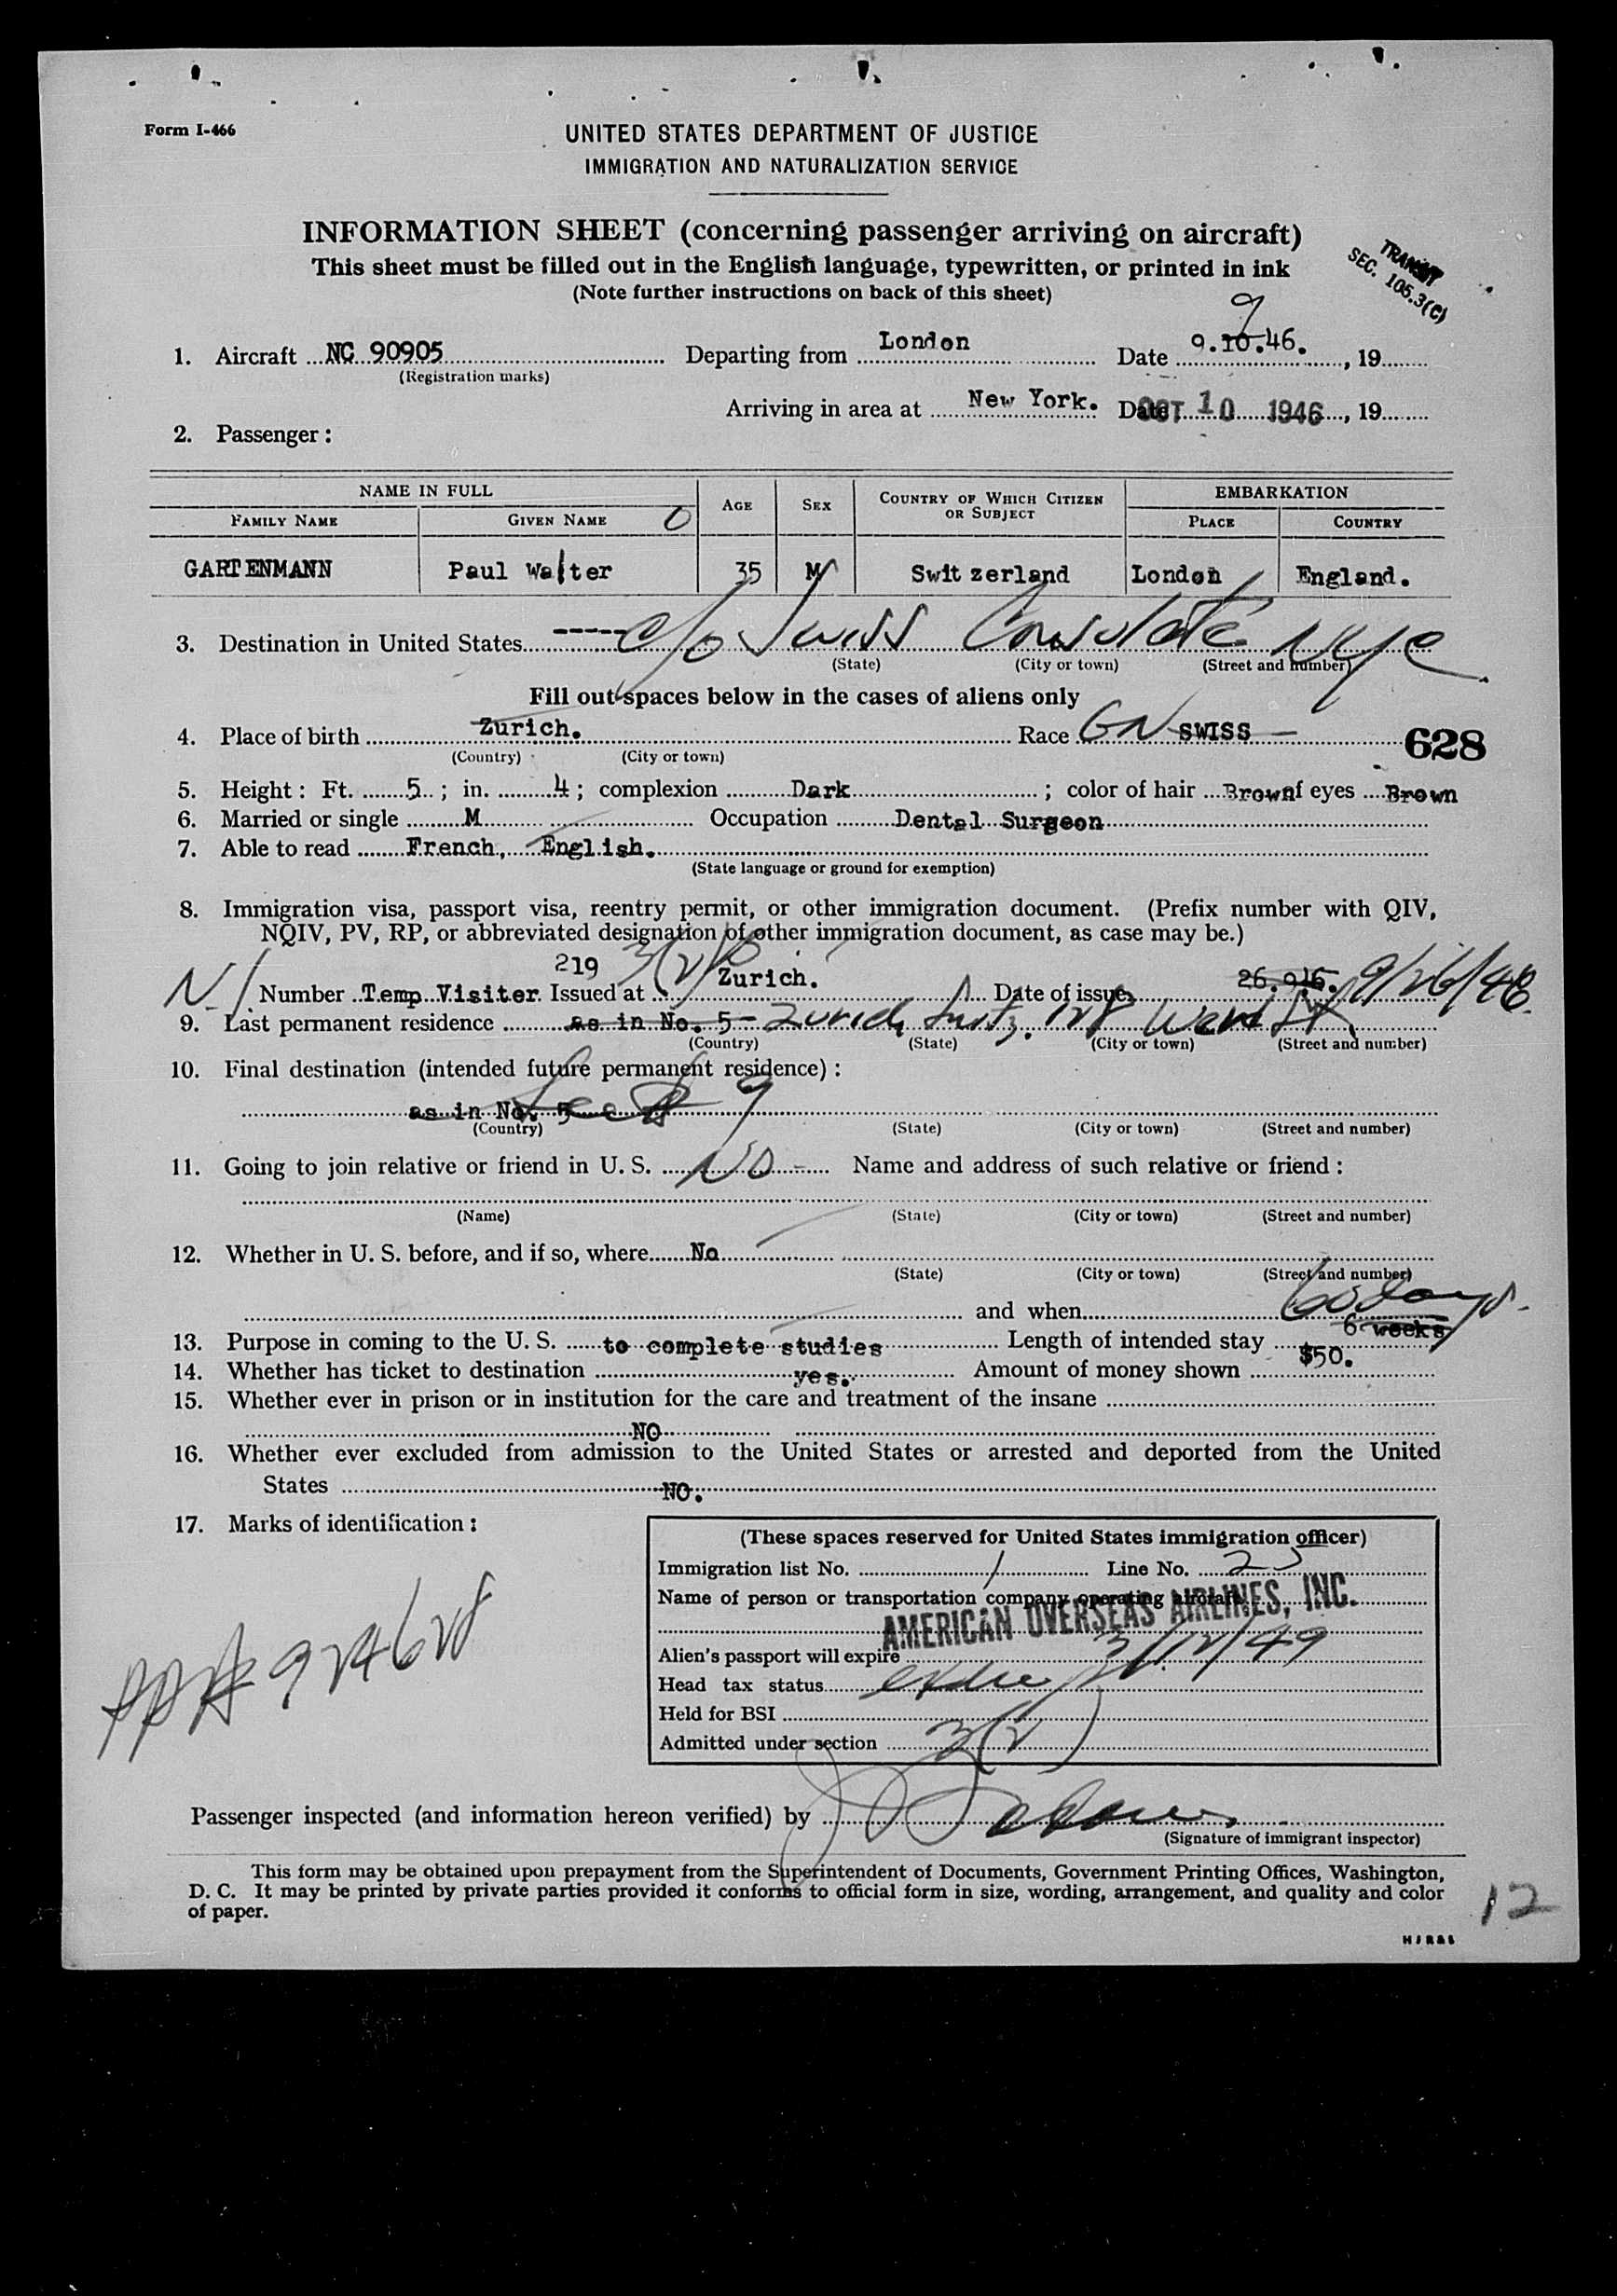 Form I-466
UNITED STATES DEPARTMENT OF JUSTICE
IMMIGRATION AND NATURALIZATION SERVICE
INFORMATION SHEET (concerning passenger arriving on aircraft)
This sheet must be filled out in the English language, typewritten, or printed in ink
(Note further instructions on back of this sheet)
TRANSIT
SEC. 105.3(C)
9
1. Aircraft NC 90905 Departing from London Date 9.10.46. , 19
(Registration marks)
Arriving in area at New York. Date OCT 10 1946 , 19
2. Passenger :
NAME IN FULL AGE SEX COUNTRY OF WHICH CITIZEN OR SUBJECT EMBARKATION
FAMILY NAME GIVEN NAME PLACE COUNTRY
GARTENMANN Paul Walter 35 M Switzerland London England.
3. Destination in United States ----- c/o Swiss Consulate NYC
(State) (City or town) (Street and number)
Fill out spaces below in the cases of aliens only
4. Place of birth Zurich. Race GN SWISS 628
(Country) (City or town)
5. Height : Ft. 5 ; in. 4 ; complexion Dark ; color of hair Brown of eyes Brown
6. Married or single M Occupation Dental Surgeon
7. Able to read French, English.
(State language or ground for exemption)
8. Immigration visa, passport visa, reentry permit, or other immigration document. (Prefix number with QIV,
NQIV, PV, RP, or abbreviated designation of other immigration document, as case may be.)
219 3(2)
Number Temp Visiter. Issued at Zurich. Date of issue 26.9.46. 9/26/46
9. Last permanent residence as in No. 5 Zurich Switz. 128
(Country) (State) (City or town) (Street and number)
10. Final destination (intended future permanent residence) :
as in No. 5 9
(Country) (State) (City or town) (Street and number)
11. Going to join relative or friend in U. S. NO Name and address of such relative or friend :
(Name) (State) (City or town) (Street and number)
12. Whether in U. S. before, and if so, where No
(State) (City or town) (Street and number)
and when 60 days.
13. Purpose in coming to the U. S. to complete studies Length of intended stay 6 weeks
14. Whether has ticket to destination yes. Amount of money shown $50.
15. Whether ever in prison or in institution for the care and treatment of the insane
NO
16. Whether ever excluded from admission to the United States or arrested and deported from the United
States NO.
17. Marks of identification :
(These spaces reserved for United States immigration officer)
Immigration list No. 1 Line No. 23
Name of person or transportation company operating aircraft
AMERICAN OVERSEAS AIRLINES, INC.
Alien's passport will expire 3/12/49
Head tax status
Held for BSI
Admitted under section 3(2)
Passenger inspected (and information hereon verified) by
(Signature of immigrant inspector)
This form may be obtained upon prepayment from the Superintendent of Documents, Government Printing Offices, Washington,
D. C. It may be printed by private parties provided it conforms to official form in size, wording, arrangement, and quality and color
of paper.
12